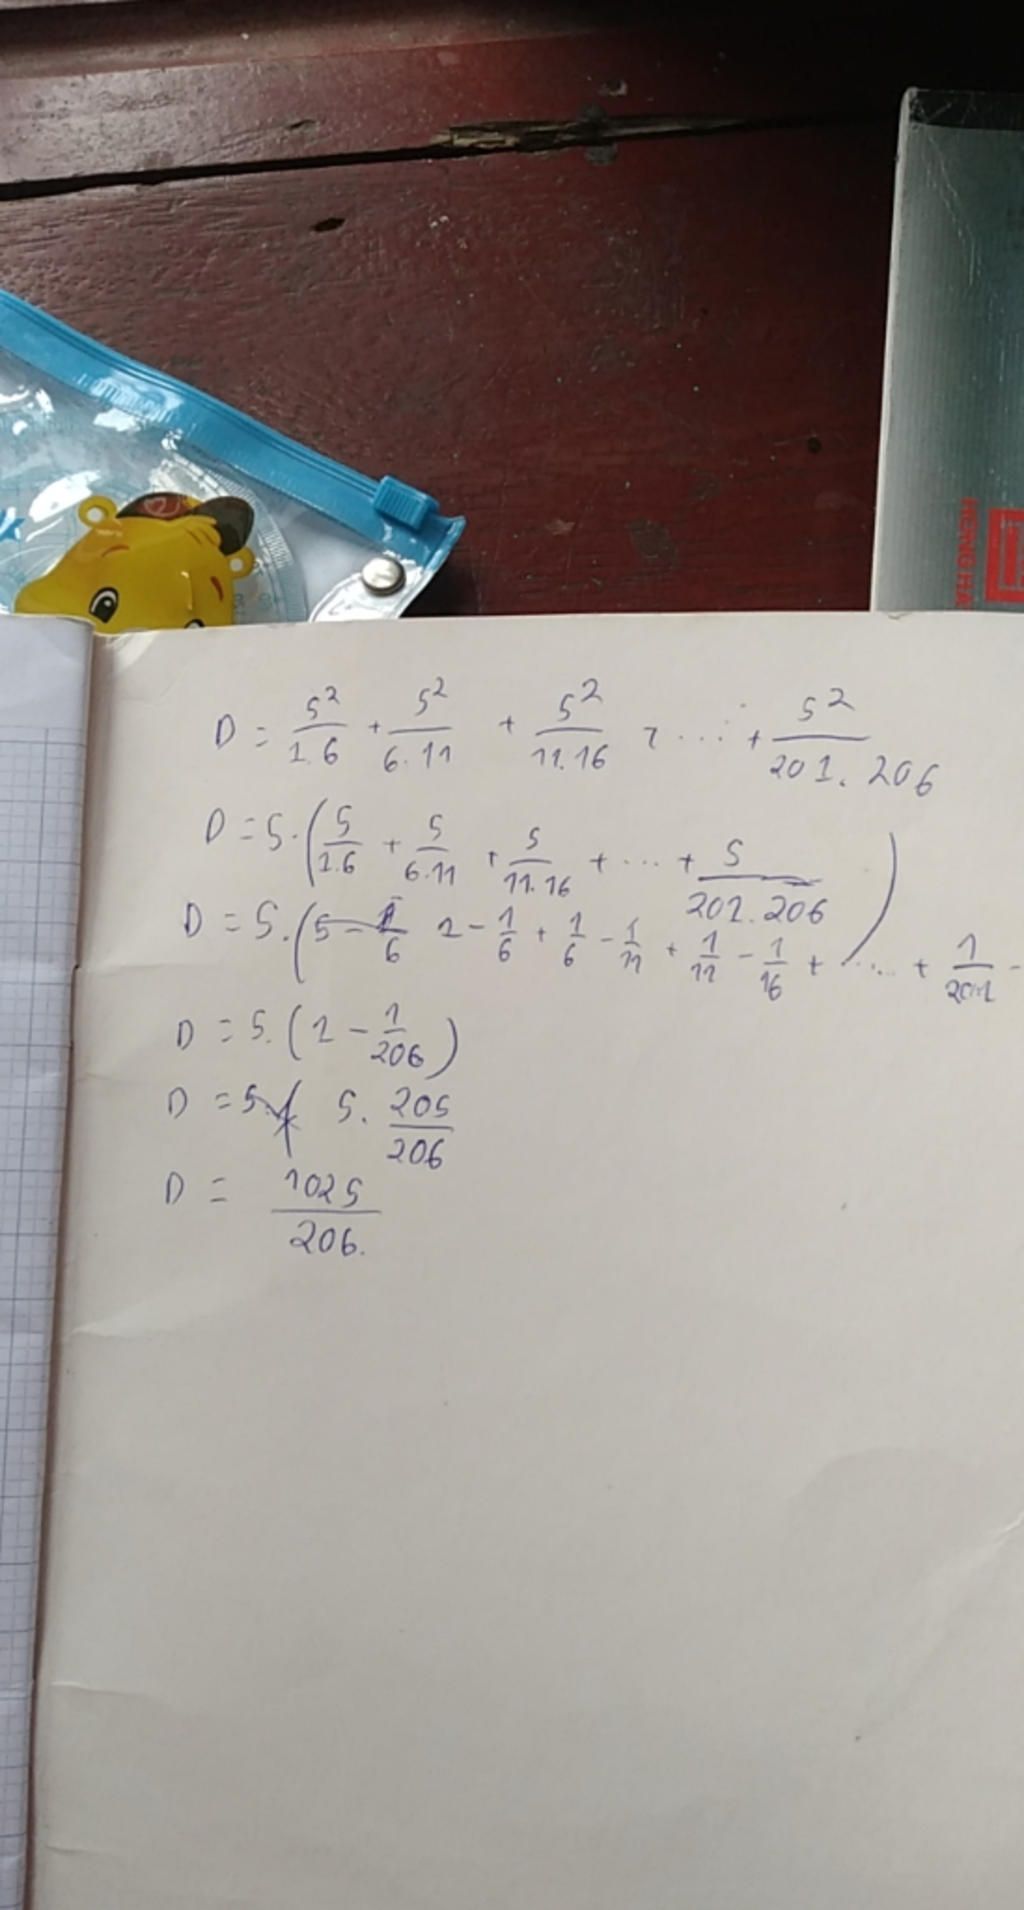 HONG HA
D = 5²/1.6 + 5²/6.11 + 5²/11.16 + ... + 5²/201.206
D = 5.(5/1.6 + 5/6.11 + 5/11.16 + ... + 5/201.206)
D = 5.(1 - 1/6 + 1/6 - 1/11 + 1/11 - 1/16 + ... + 1/201 -
D = 5.(1 - 1/206)
D = 5. 205/206
D = 1025/206.